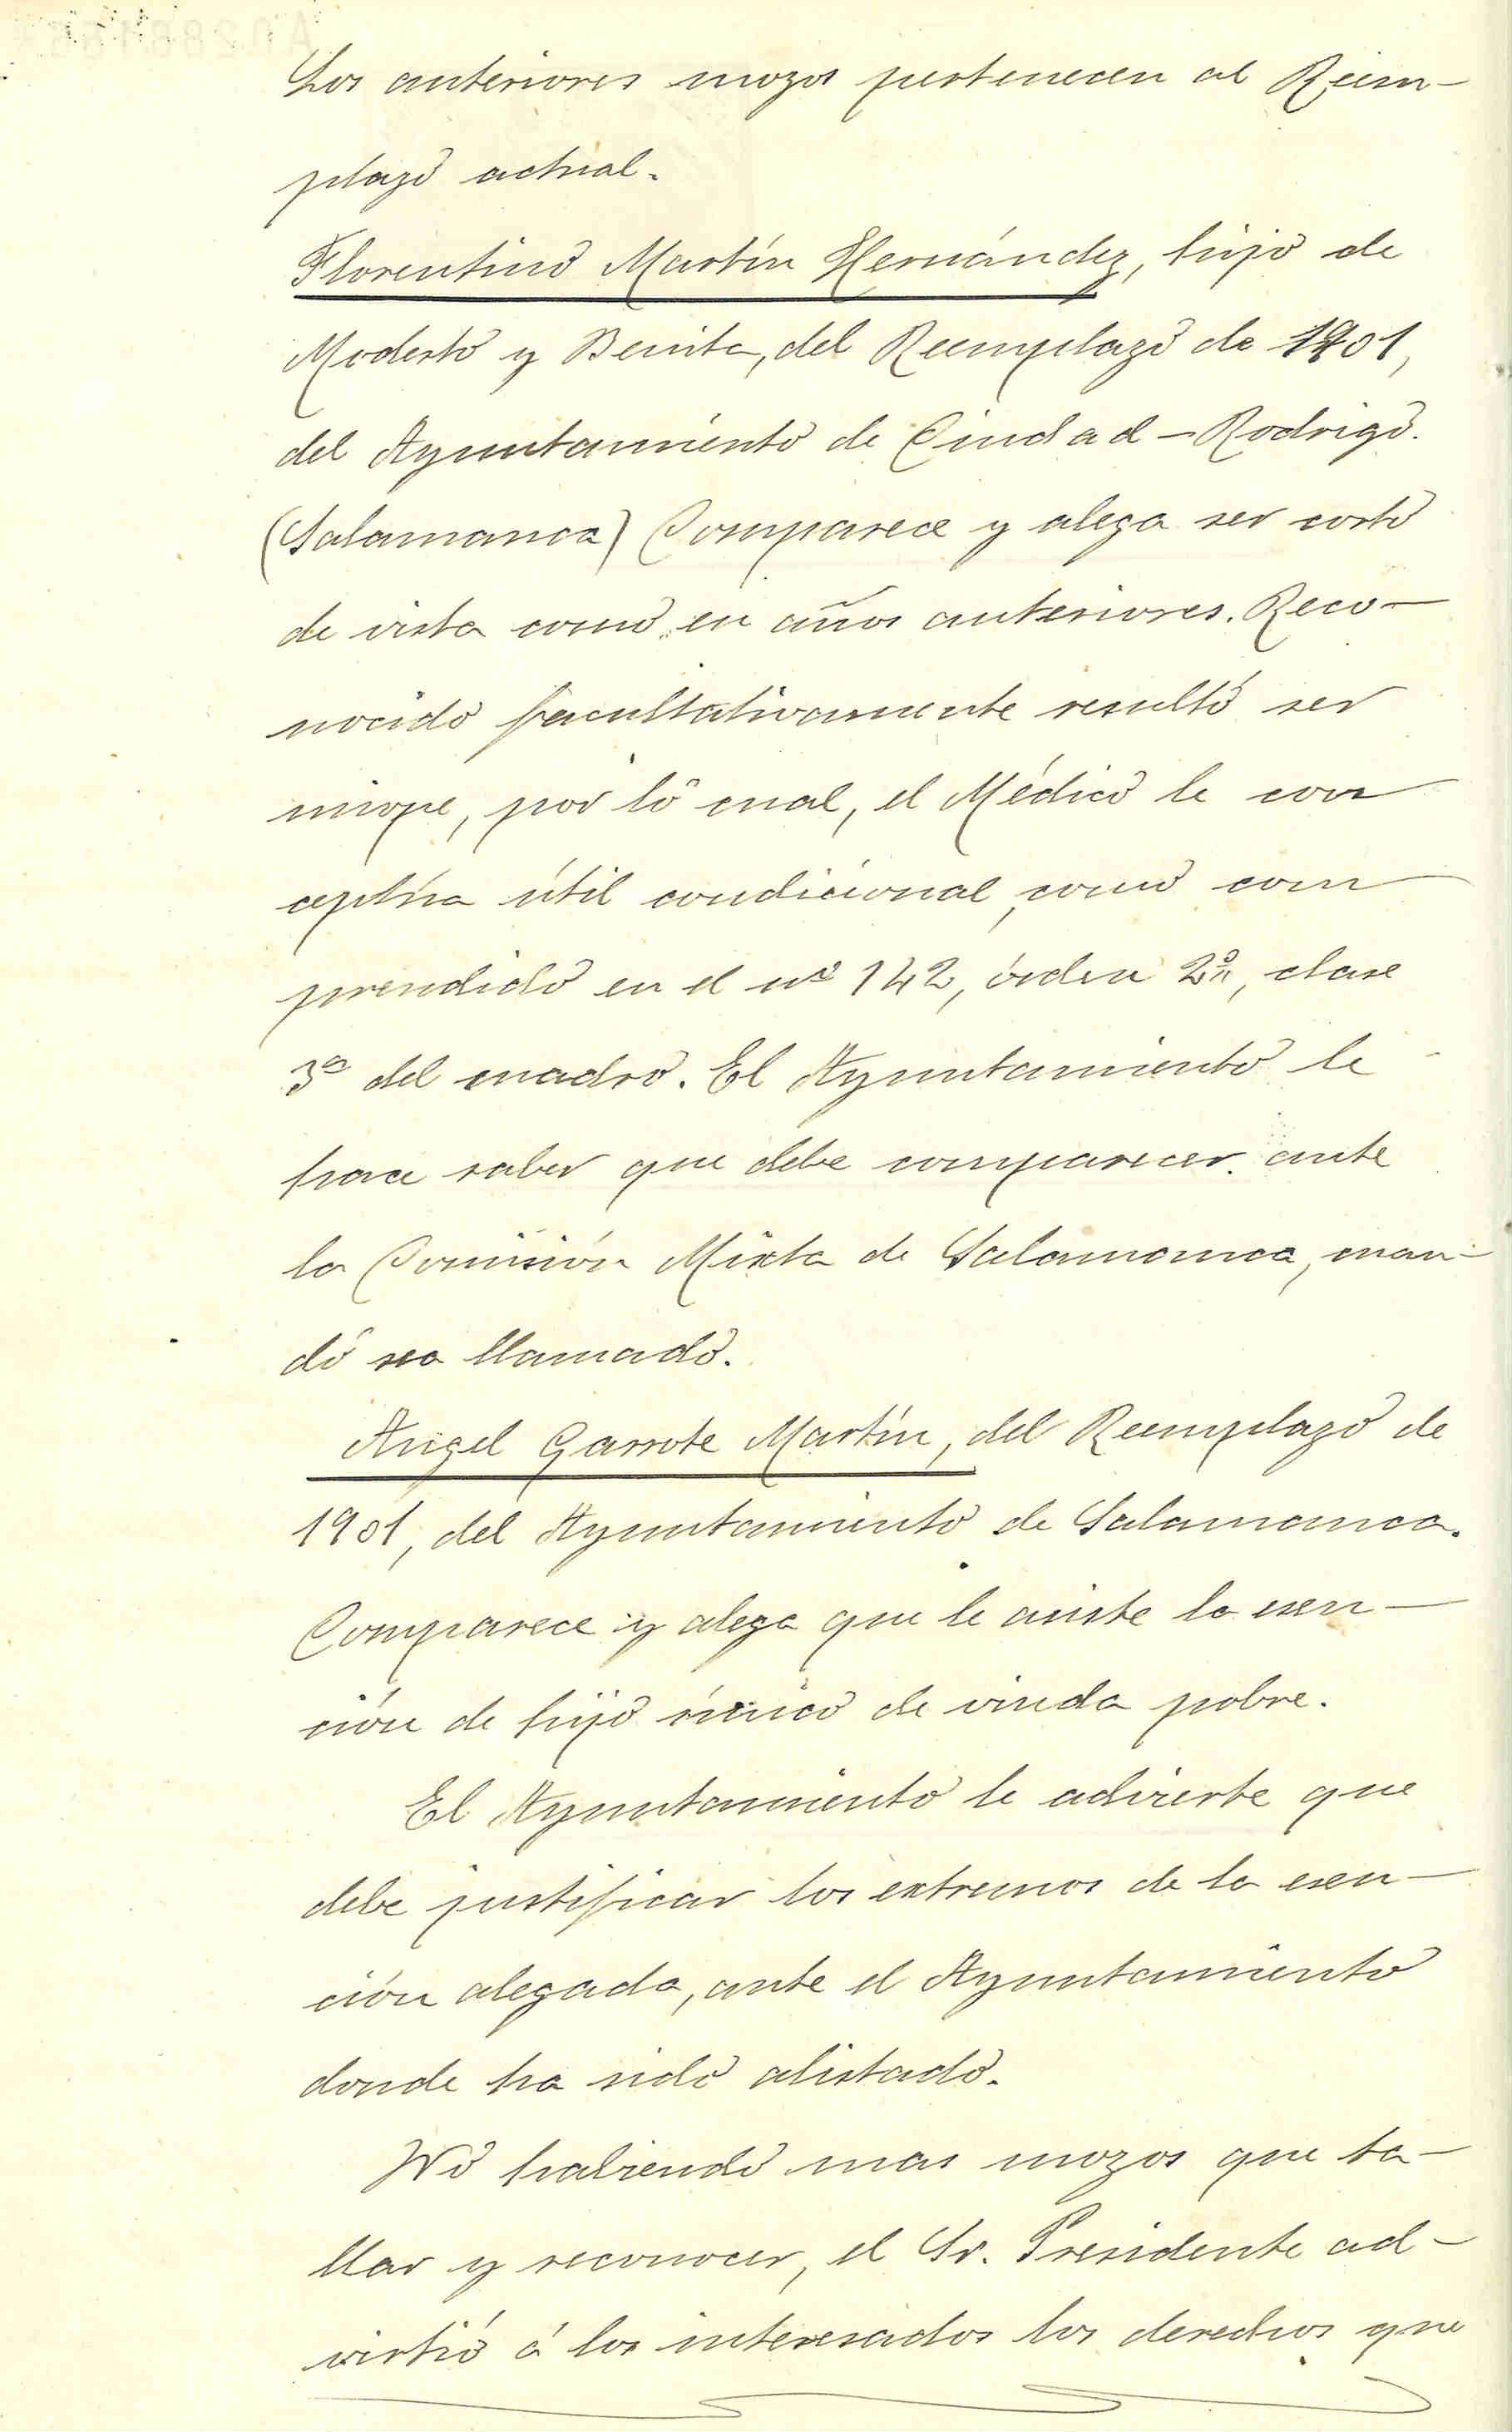 Los anteriores mozos pertenecen al Reem-
plazo actual.
Florentino Martín Hernández, hijo de
Modesto y Benita, del Reemplazo de 1901,
del Ayuntamiento de Ciudad-Rodrigo.
(Salamanca) Comparece y alega ser corto
de vista como en años anteriores. Reco-
nocido facultativamente resultó ser
miope, por lo cual, el Médico le con
ceptúa útil condicional, como com
prendido en el nº 142, órden 2º, clase
3ª del cuadro. El Ayuntamiento le
hace saber que debe comparecer ante
la Comisión Mixta de Salamanca, cuan-
do sea llamado.
Angel Garrote Martín, del Reemplazo de
1901, del Ayuntamiento de Salamanca.
Comparece y alega que le asiste la exen-
ción de hijo único de viuda pobre.
El Ayuntamiento le advierte que
debe justificar los extremos de la exen-
ción alegada, ante el Ayuntamiento
donde ha sido alistado.
No habiendo mas mozos que ta-
llar y reconocer, el Sr. Presidente ad-
virtió á los interesados los derechos que